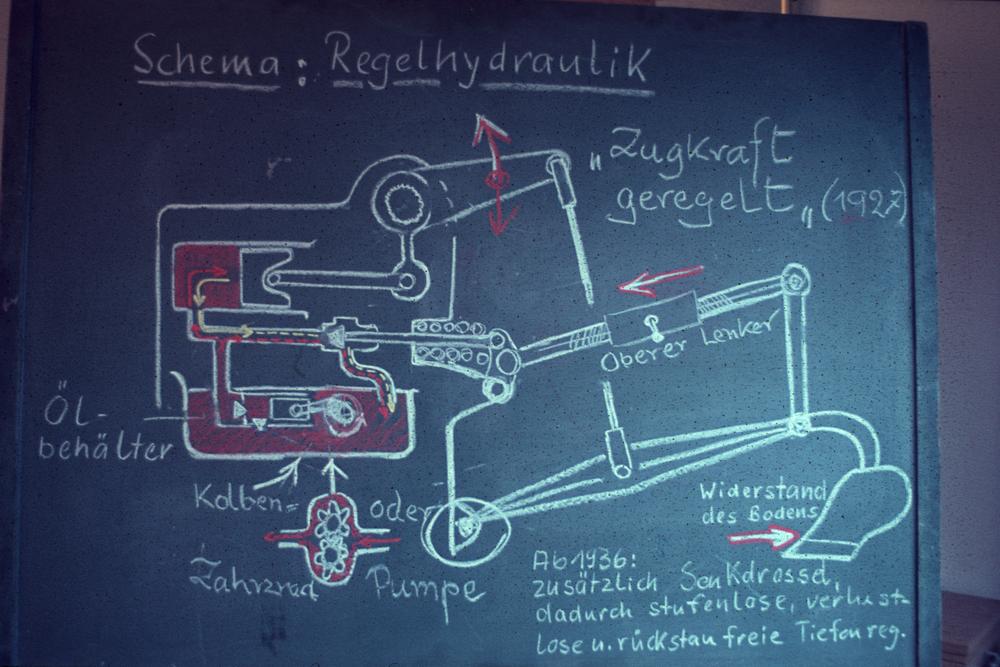 Schema: Regelhydraulik
„Zugkraft
geregelt„ (1927)
Oberer Lenker
Öl-
behälter
Kolben= oder
Zahnrad Pumpe
Widerstand
des Bodens
Ab 1936:
zusätzlich Senkdrossel,
dadurch stufenlose, verlust-
lose u. rückstaufreie Tiefenreg.